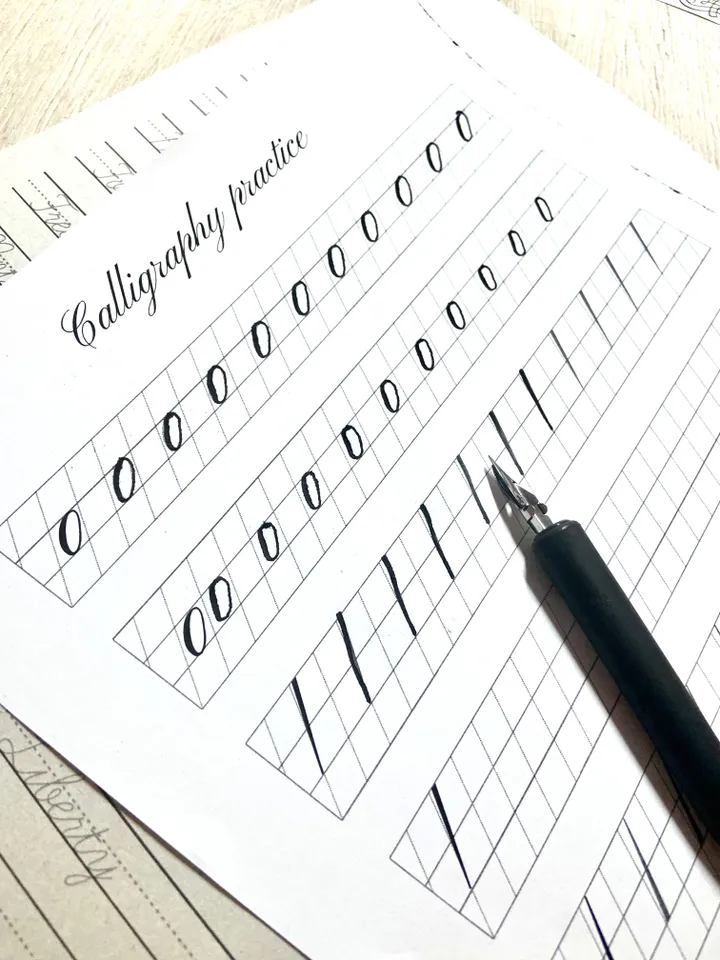 Calligraphy practice
o o o o o o o o o o o
o o o o o o o o o o o
Liberty